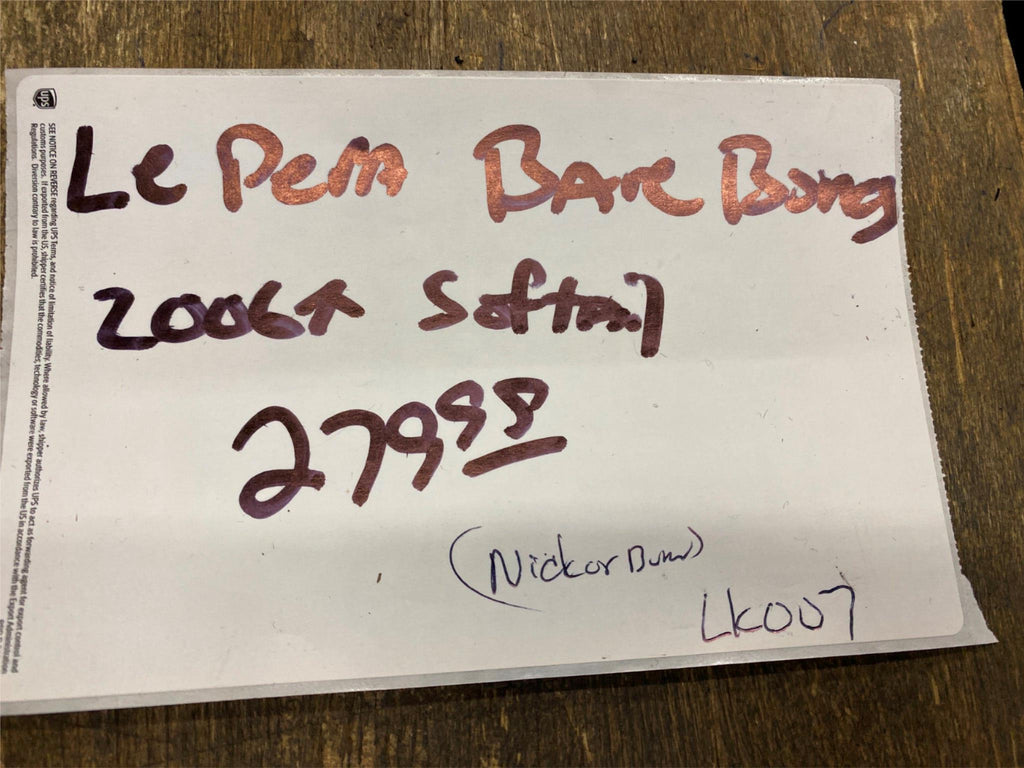 Le Pera Bare Bones
2006↑ Softail
279.98
(Nick or
LK007
ups
SEE NOTICE ON REVERSE regarding UPS Terms, and notice of limitation of liability. Where allowed by law, shipper authorizes UPS to act as forwarding agent for export control and
customs purposes. If exported from the US, shipper certifies that the commodities, technology or software were exported from the US in accordance with the Export Administration
Regulations. Diversion contrary to law is prohibited.